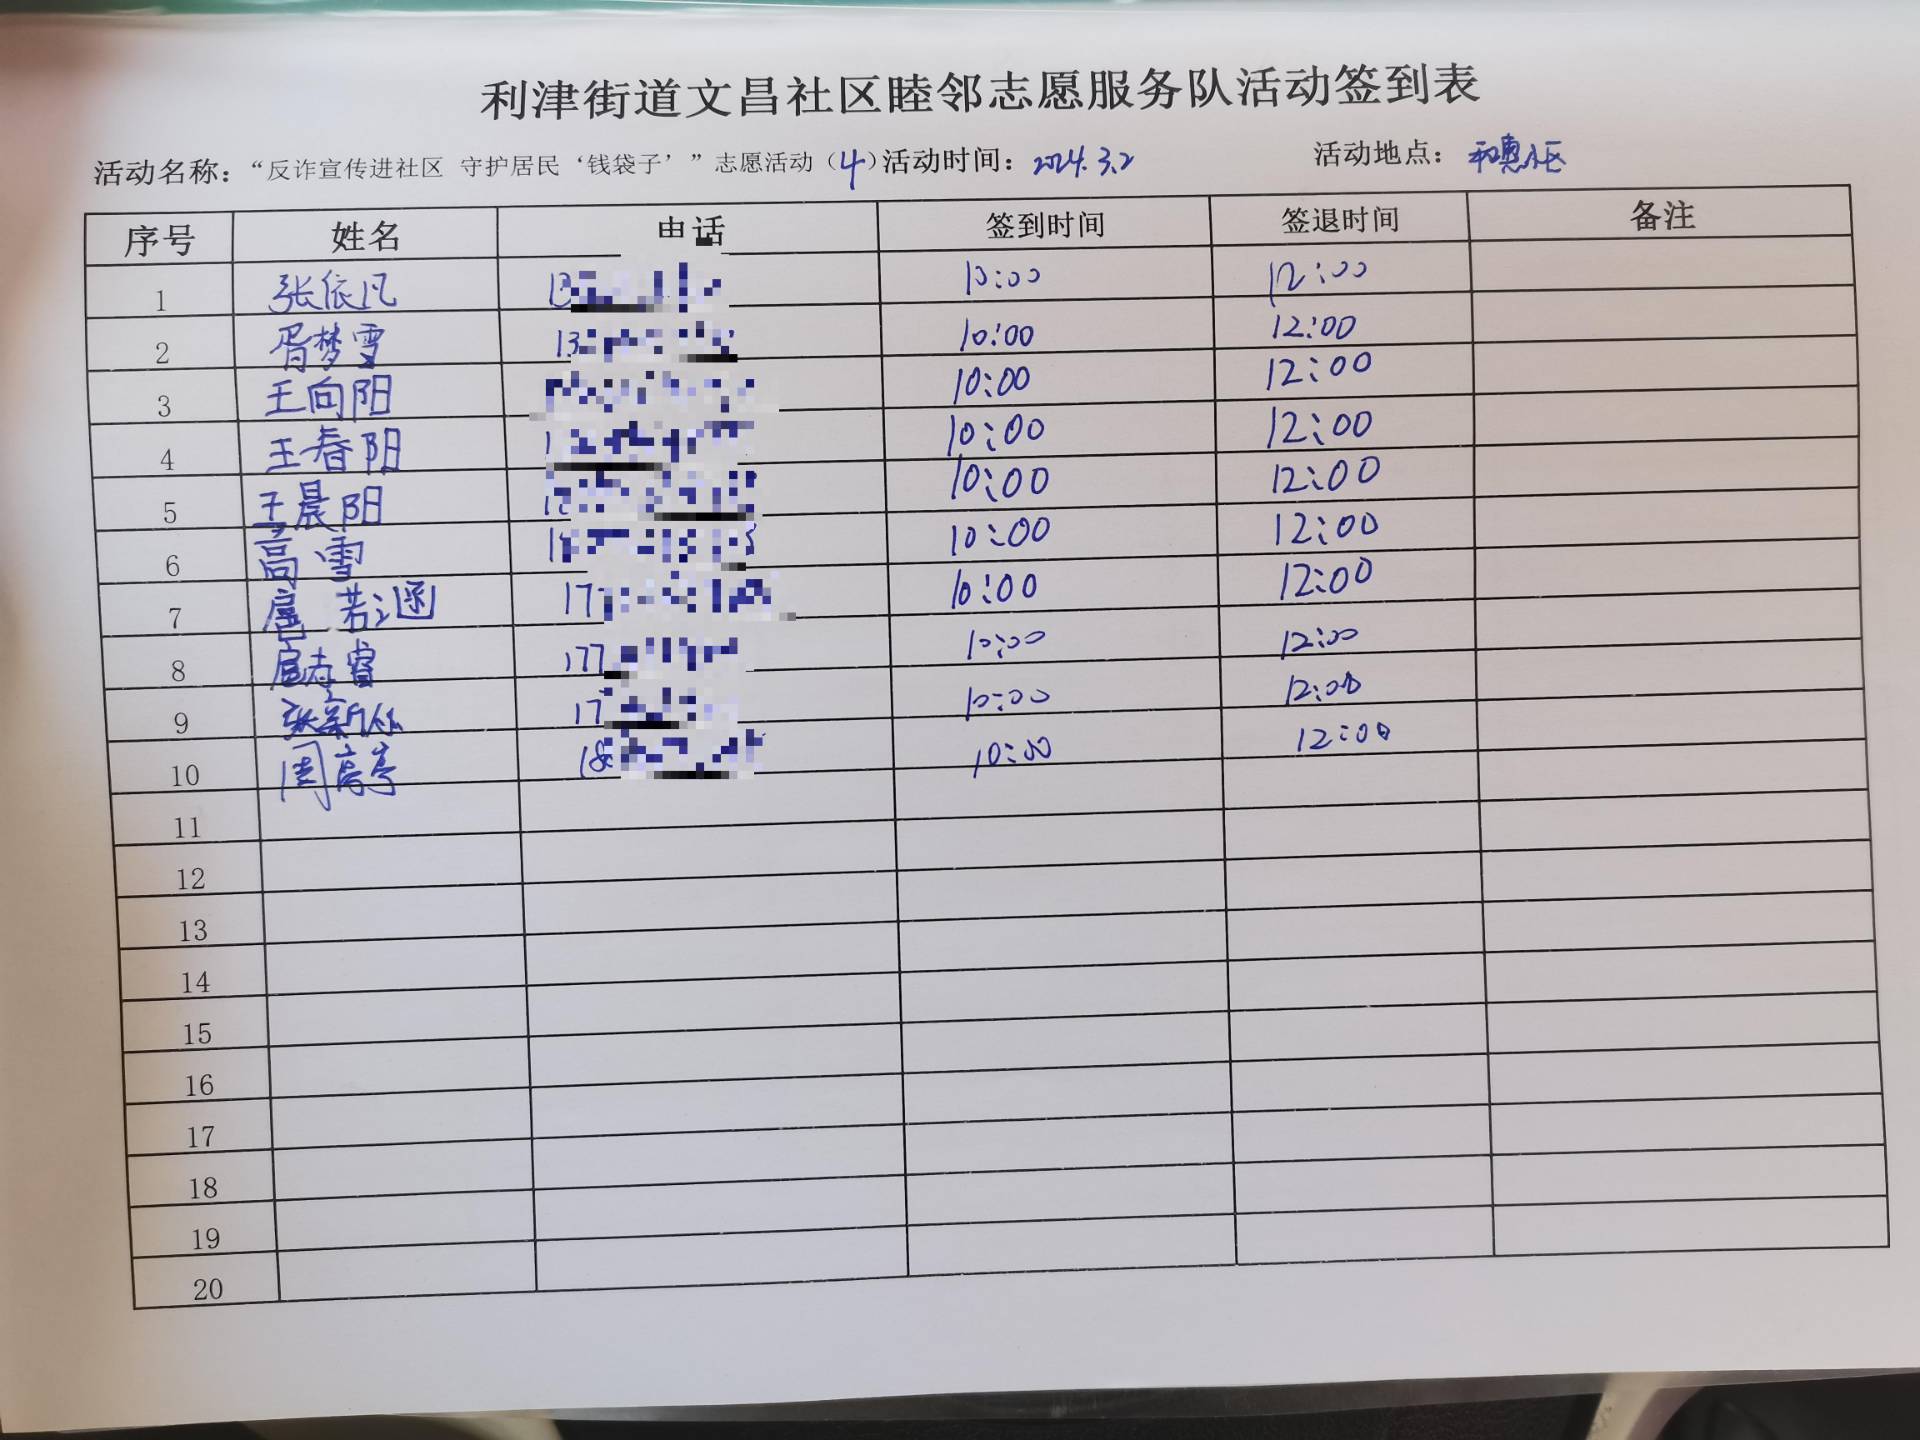 利津街道文昌社区睦邻志愿服务队活动签到表
活动名称：“反诈宣传进社区 守护居民‘钱袋子’”志愿活动（4）活动时间：2024.3.2 活动地点：和惠小区
序号 姓名 电话 签到时间 签退时间 备注
1 张依凡 10:00 12:00
2 胥梦雪 13 10:00 12:00
3 王向阳 10:00 12:00
4 王春阳 1 10:00 12:00
5 王晨阳 10:00 12:00
6 高雪 10:00 12:00
7 扈若涵 17 10:00 12:00
8 177 10:00 12:00
9 17 10:00 12:00
10 18 10:00 12:00
11
12
13
14
15
16
17
18
19
20